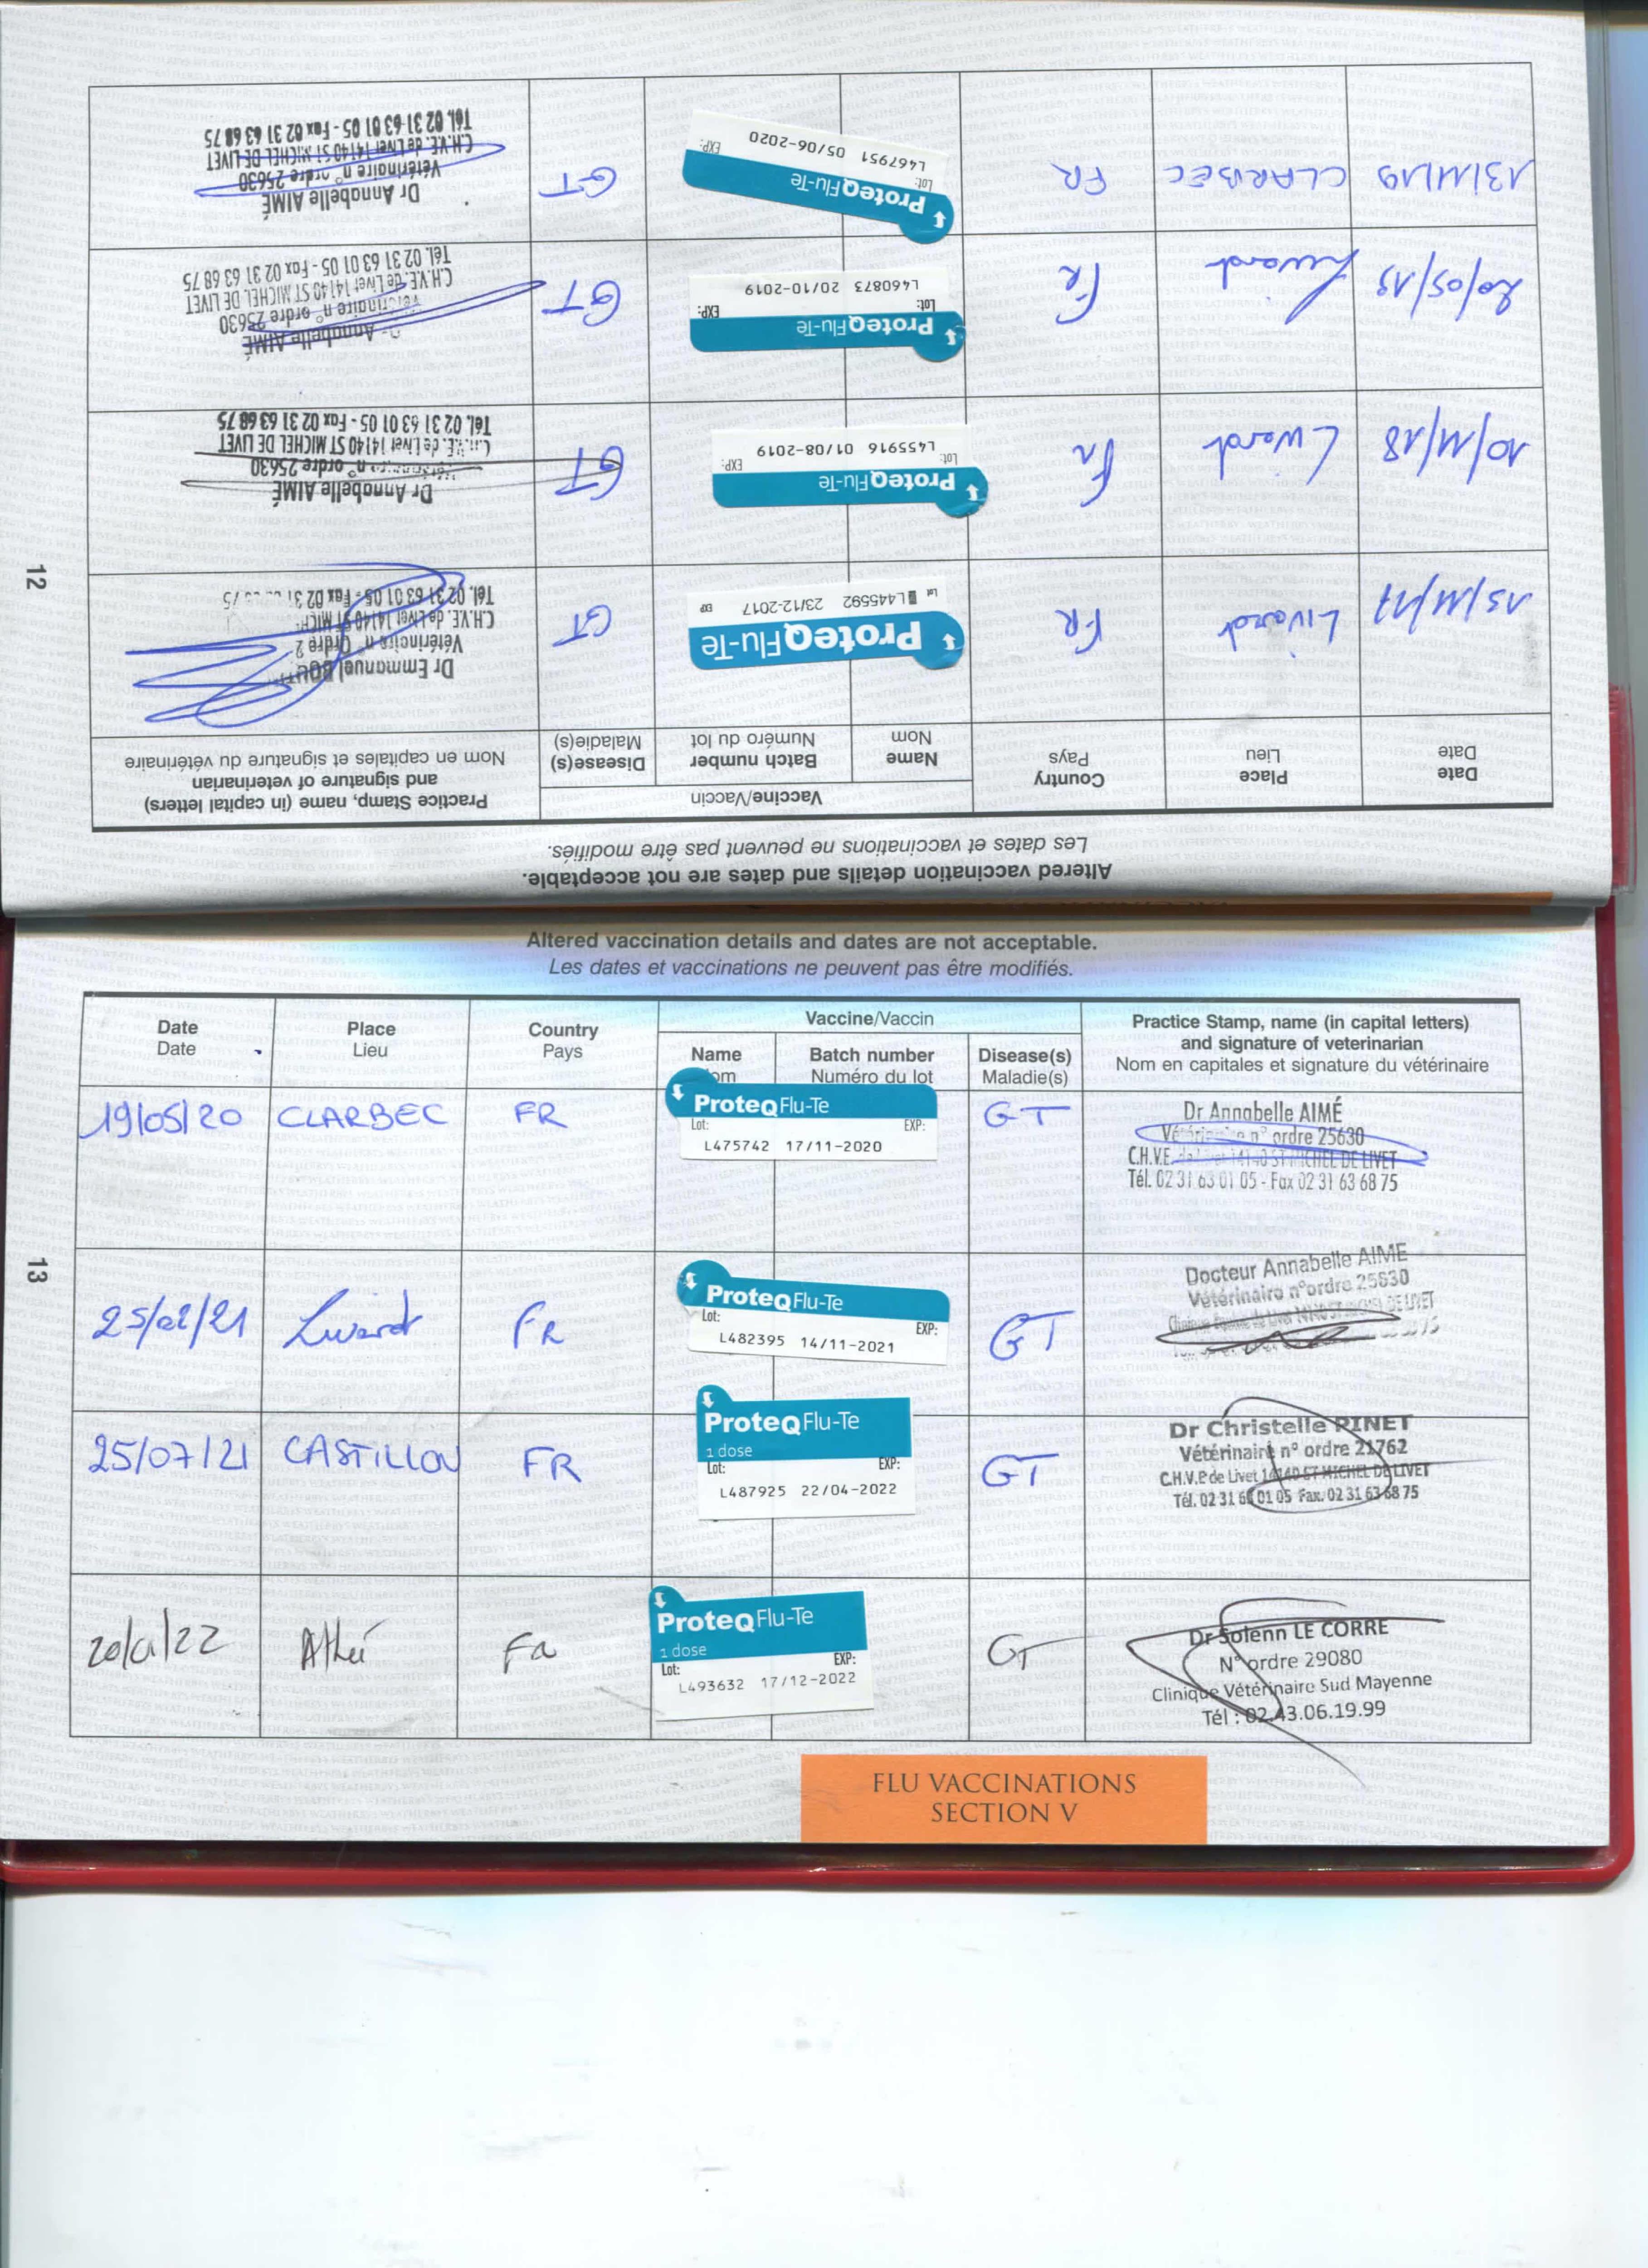 12
Altered vaccination details and dates are not acceptable.
Les dates et vaccinations ne peuvent pas être modifiés.
Date
Date
Place
Lieu
Country
Pays
Vaccine/Vaccin
Name
Nom
Batch number
Numéro du lot
Disease(s)
Maladie(s)
Practice Stamp, name (in capital letters)
and signature of veterinarian
Nom en capitales et signature du vétérinaire
15/11/17
Livarot
FR
ProteqFlu-Te
Lot
EXP
L445592 23/12-2017
GT
Dr Emmanuel
Vétérinaire n° Ordre 2
C.H.V.E. de Livet 14140 ST MICH
Tél. 02 31 63 01 05 - Fax 02 31 75
10/11/18
Livarot
Fr
ProteqFlu-Te
Lot: EXP:
L455916 01/08-2019
GT
Dr Annabelle AIMÉ
n° ordre 25630
de Livet 14140 ST MICHEL DE LIVET
Tél. 02 31 63 01 05 - Fax 02 31 63 68 75
20/05/19
Livarot
FR
ProteqFlu-Te
Lot: EXP:
L460873 20/10-2019
GT
Annabelle AIMÉ
n° ordre 25630
C.H.V.E. de Livet 14140 ST MICHEL DE LIVET
Tél. 02 31 63 01 05 - Fax 02 31 63 68 75
13/11/19
CLARBEC
FR
ProteqFlu-Te
Lot: EXP:
L467951 05/06-2020
GT
Dr Annabelle AIMÉ
Vétérinaire n° ordre 25630
C.H.V.E. de Livet 14140 ST MICHEL DE LIVET
Tél. 02 31 63 01 05 - Fax 02 31 63 68 75
13
Altered vaccination details and dates are not acceptable.
Les dates et vaccinations ne peuvent pas être modifiés.
Date
Date
Place
Lieu
Country
Pays
Vaccine/Vaccin
Name
Batch number
Numéro du lot
Disease(s)
Maladie(s)
Practice Stamp, name (in capital letters)
and signature of veterinarian
Nom en capitales et signature du vétérinaire
19/05/20
CLARBEC
FR
ProteqFlu-Te
Lot: EXP:
L475742 17/11-2020
GT
Dr Annabelle AIMÉ
Vétérinaire n° ordre 25630
C.H.V.E. de Livet 14140 ST MICHEL DE LIVET
Tél. 02 31 63 01 05 - Fax 02 31 63 68 75
25/02/21
Livarot
FR
ProteqFlu-Te
Lot: EXP:
L482395 14/11-2021
GT
Docteur Annabelle AIME
Vétérinaire n°ordre 25630
DE LIVET
25/07/21
CASTILLON
FR
ProteqFlu-Te
1 dose
Lot: EXP:
L487925 22/04-2022
GT
Dr Christelle RINET
Vétérinaire n° ordre 21762
C.H.V.P. de Livet 14140 ST MICHEL DE LIVET
Tél. 02 31 63 01 05 Fax. 02 31 63 68 75
20/01/22
FR
ProteqFlu-Te
1 dose
Lot: EXP:
L493632 17/12-2022
GT
Dr Solenn LE CORRE
N° ordre 29080
Clinique Vétérinaire Sud Mayenne
Tél : 02.43.06.19.99
FLU VACCINATIONS
SECTION V